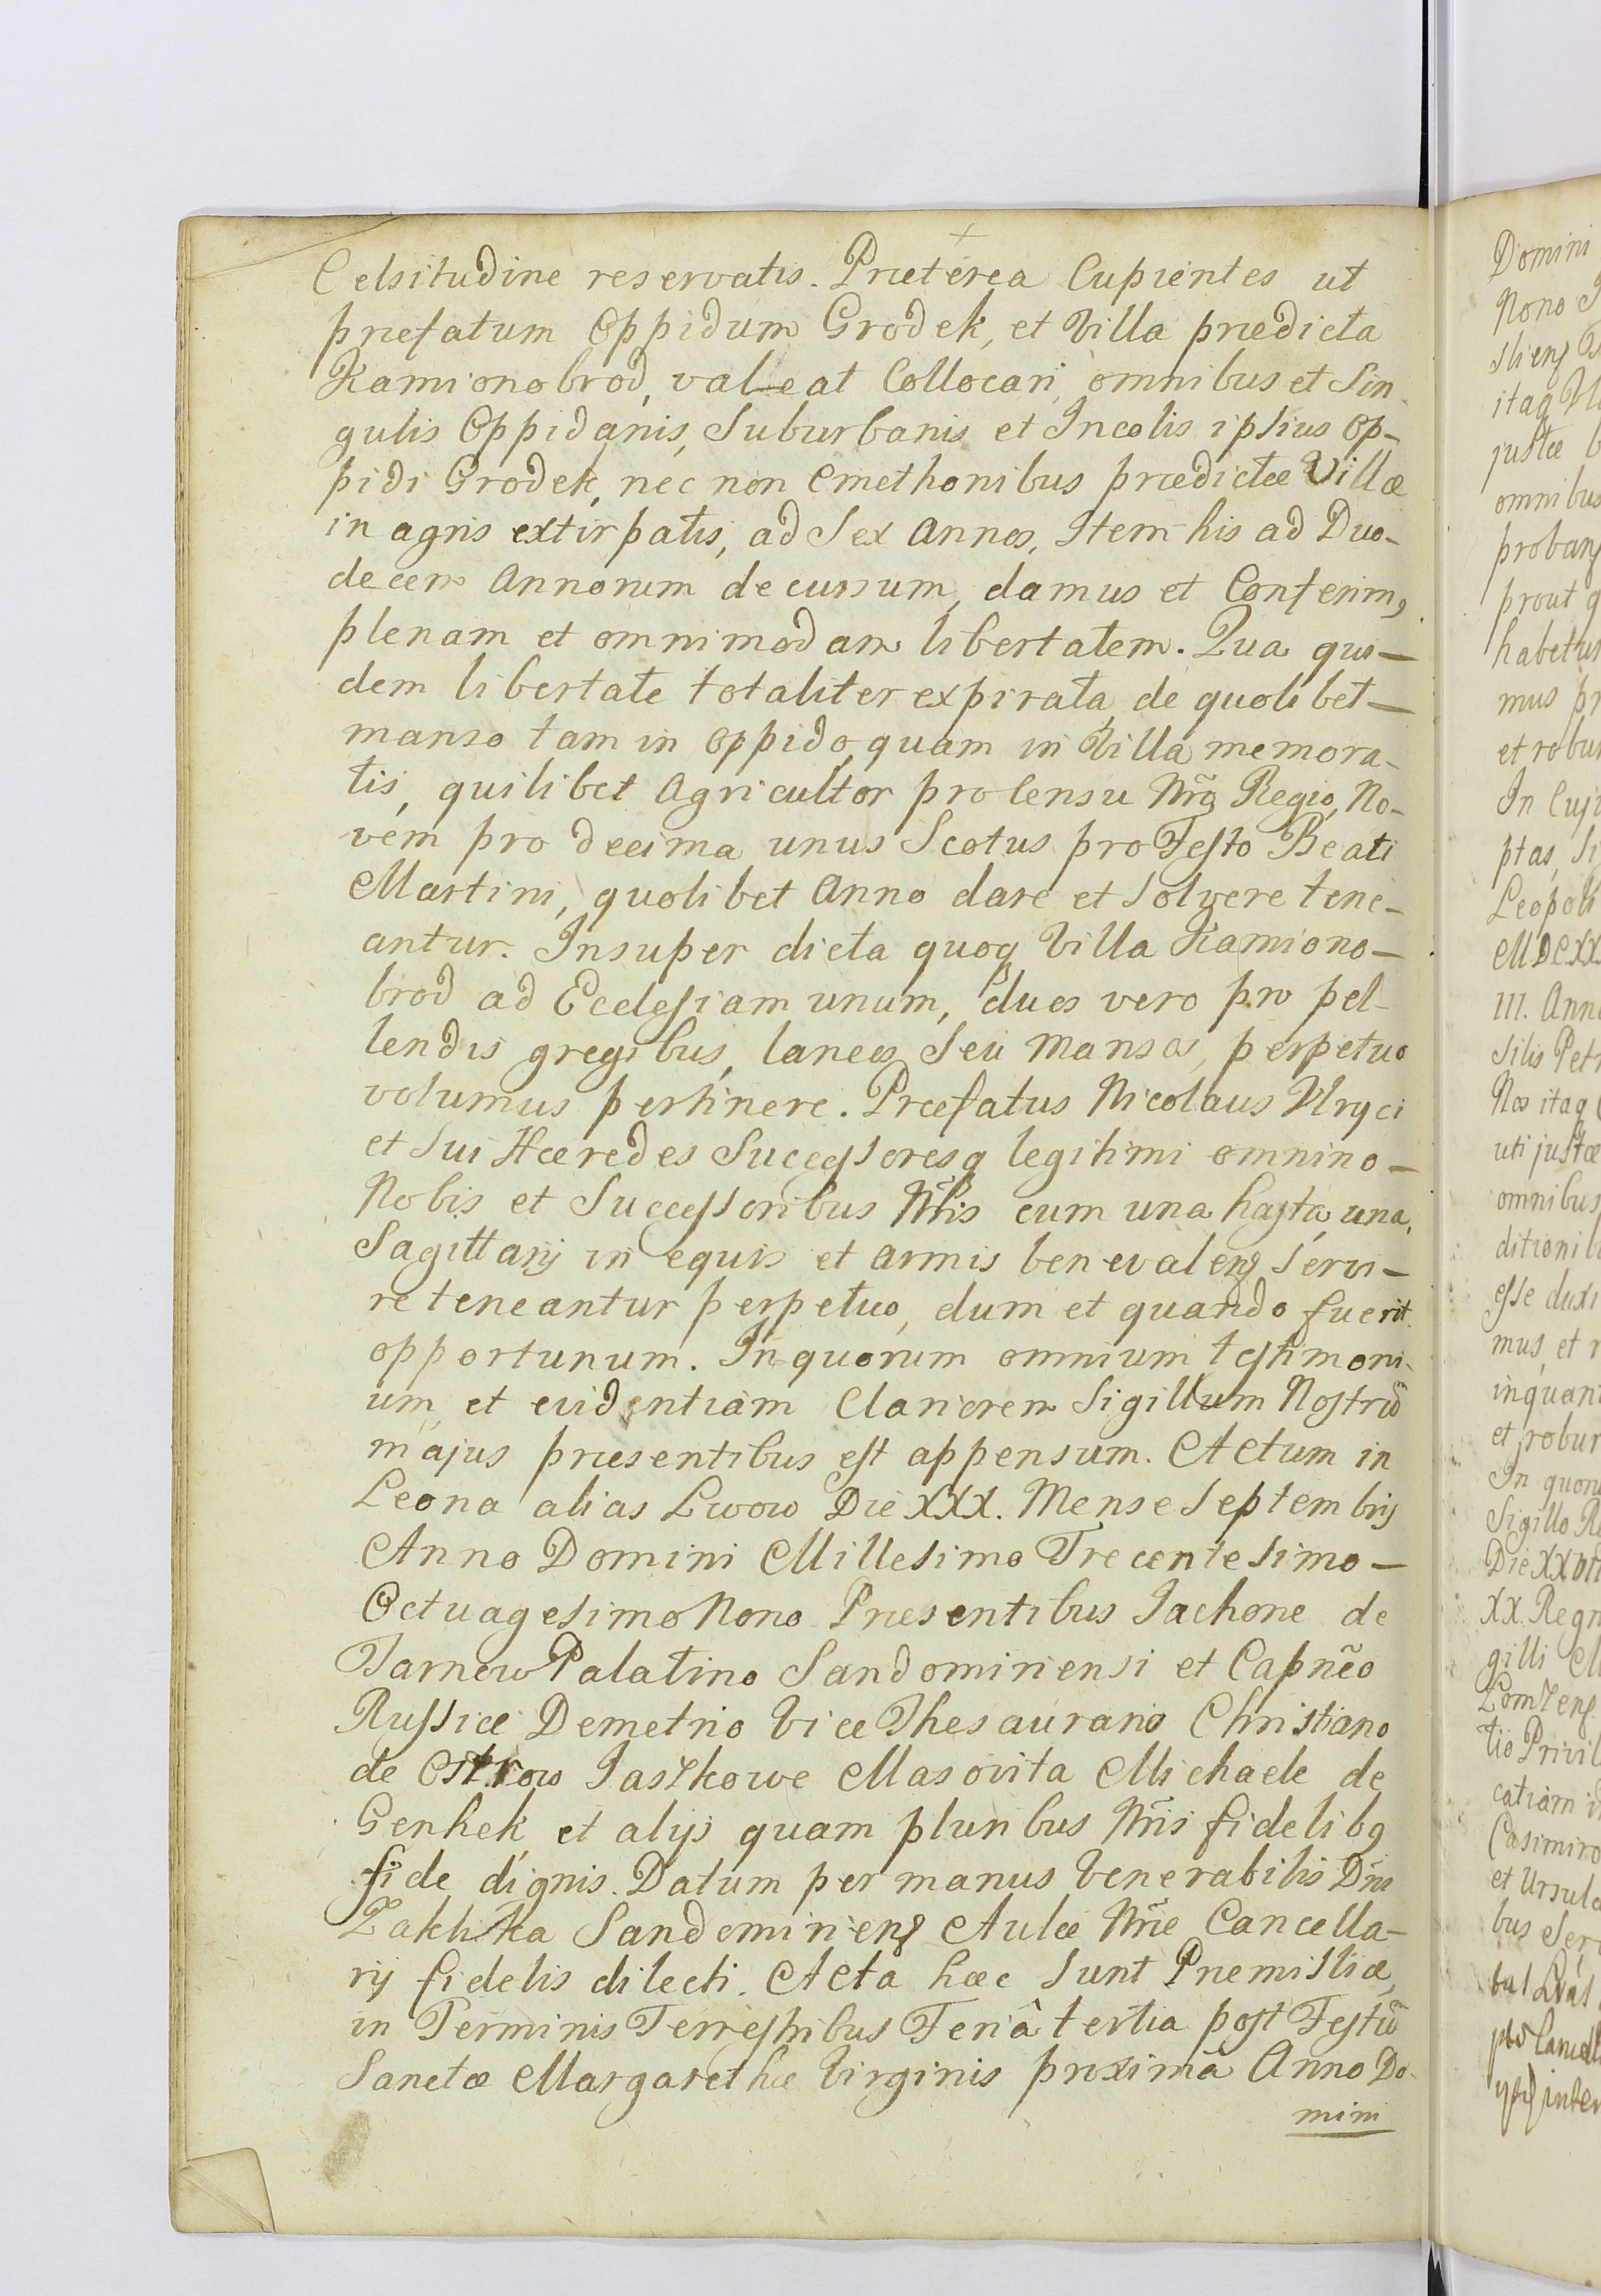 Celsitudine reservatis. Præterea Cupientes ut
præfatum Oppidum Grodek, et Villa prædicta
Kamionobrod, valeat Collocari, omnibus et Sin
gulis Oppidanis, Suburbanis et Incolis ipsius Op-
pidi Grodek, nec non Cmethonibus prædictæ Villæ
in agris extirpatis, ad Sex Annos, Item his ad Duo-
decem Annorum decursum, damus et Conferimꝯ
plenam et omnimodam libertatem. Qua qui-
dem libertate totaliter expirata, de quolibet-
manso tam in Oppido, quam in Villa memora-
tis, quilibet Agricultor pro Censu Nr̃o Regio, No-
vem pro decima unus Scotus pro Festo Beati
Martini, quolibet Anno dare et Solvere tene-
antur. Insuper dicta quoq Villa Kamiono-
brod ad Ecclesiam unum, duos vero pro pel-
lendis gregibus, laneos Seu Mansos, perpetuo
volumus pertinere. Præfatus Nicolaus Ulryci
et Sui Hæredes Successoresq legitimi omnino-
Nobis et Successoribus Nr̃is cum una hasta, una,
Sagittarij in equis et armis bene valenꝭ Servi-
re teneantur perpetuo, dum et quando fuerit
opportunum. In quorum omnium testimoni-
um, et evidentiam Clariorem Sigillum Nostrũ
majus præsentibus est appensum. Actum in
Leona alias Lwow Die XXX. Mense Septembris
Anno Domini Millesimo Trecentesimo-
Octuagesimo Nono Præsentibus Jachone de
Tarnow Palatino Sandomiriensi et Capnẽo
Russiæ Demetrio Vice Thesaurario Christiano
de Ostrow Jaszkowe Masovita Michaele de
Genhek et alijs quam pluribus Nr̃is fidelibꝯ
fide dignis. Datum per manus Venerabilis Dñi
Zaklika Sandomirienꝭ Aulæ Nr̃æ Cancella-
rij fidelis dilecti. Acta hæc Sunt Præmisliæ,
in Terminis Terrestribus Feriâ tertia post Festũ
Sanctæ Margarethæ Virginis proximâ Anno Do-
mini
Domini
Nono
itaq
justæ
omnibus
prout
habetur
mus
et
In
ptas,
Leopoli
MDCXX
III.
Nos itaq
uti justæ
omnibus
esse duxi
mus, et
et robur
Sigillo
XX. Regn
gilli
Casimiro